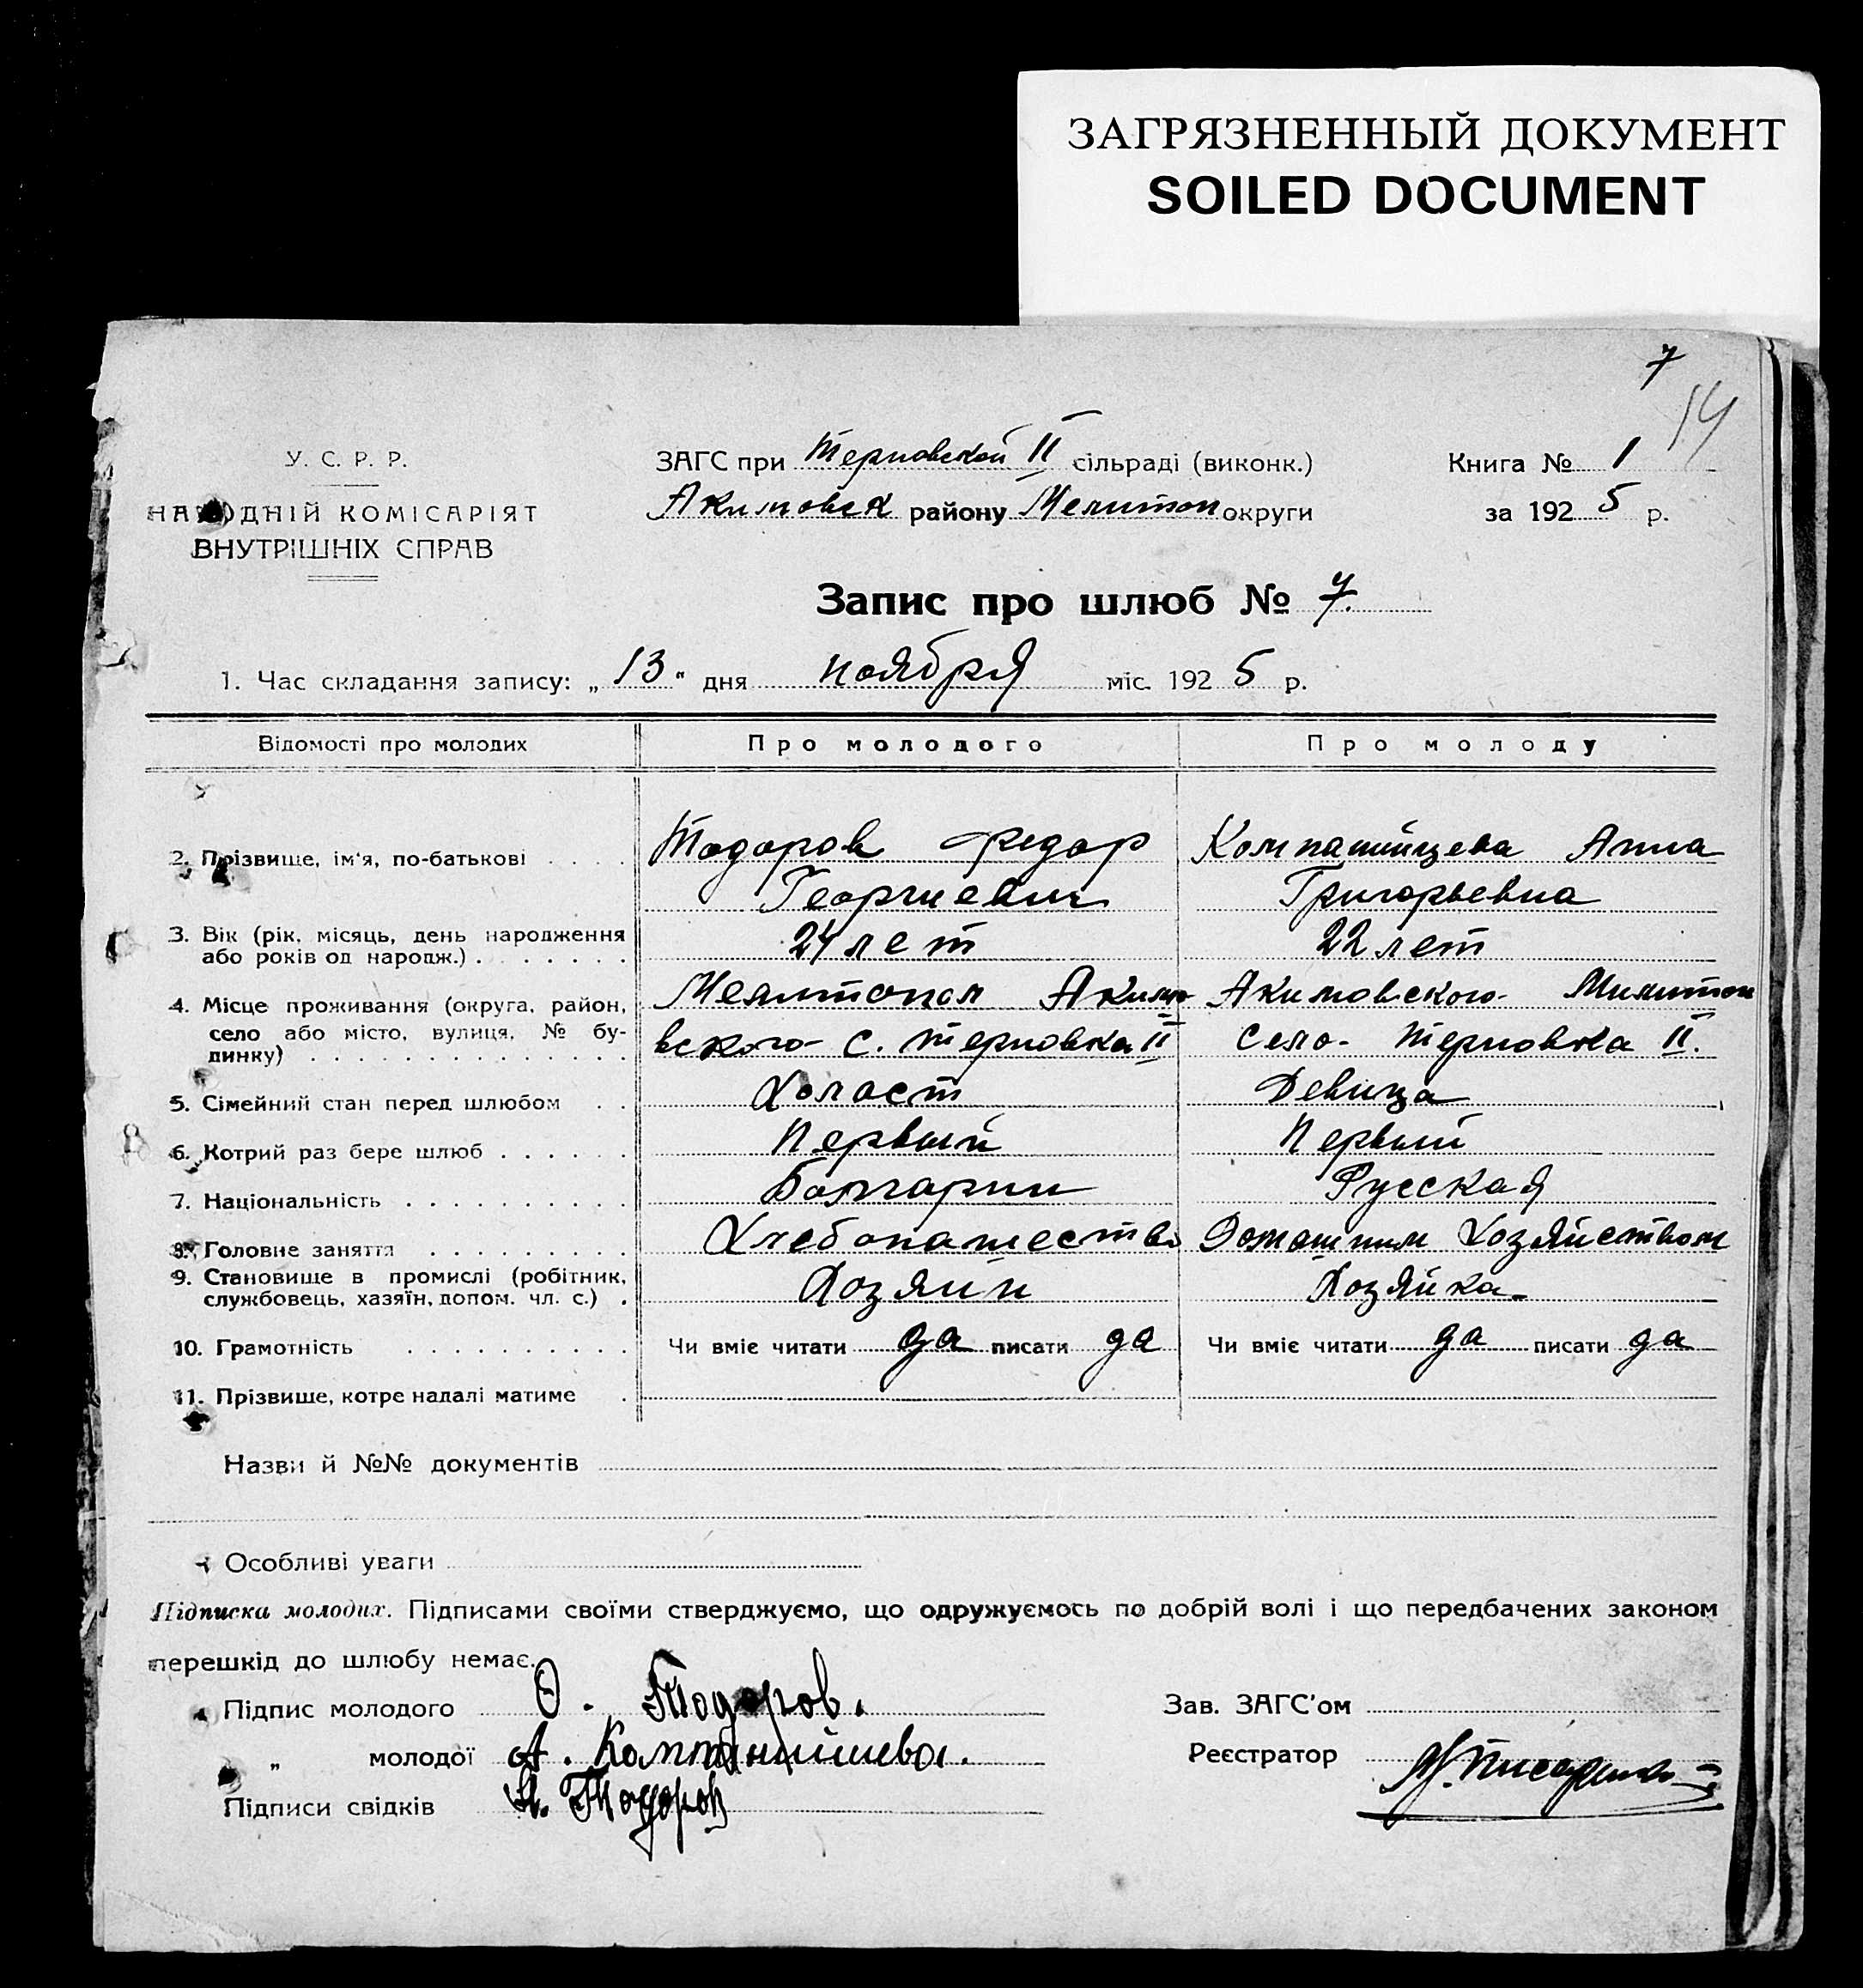 ЗАГРЯЗНЕННЫЙ ДОКУМЕНТ
SOILED DOCUMENT
7
14
У. С. Р. Р.
НАРОДНІЙ КОМІСАРІЯТ
ВНУТРІШНІХ СПРАВ
ЗАГС при Терновской II сільраді (виконк.)
Акимовск району Мелитоп округи
Книга № 1
за 1925 р.
Запис про шлюб № 7.
1. Час складання запису: „13" дня ноября міс. 1925 р.
Відомості про молодих Про молодого Про молоду
2. Прізвище, ім'я, по-батькові . . . . Тодоров Федор Компанийцева Анна
Георгиевич Григорьевна
3. Вік (рік, місяць, день народження або років од народж.) . . . . . . . 24 лет 22 лет
4. Місце проживання (округа, район, село або місто, вулиця, № будинку) . . . . . . . . . . . . . .
Мелитопол Акимо- Акимовского Милитоп
вского с. Терновка II село Терновка II.
5. Сімейний стан перед шлюбом . . Холост Девица
6. Котрий раз бере шлюб . . . . . . Первый Первый
7. Національність . . . . . . . . . . Болгарин Русская
8. Головне заняття . . . . . . . . . Хлебопашество Домашним Хозяйством
9. Становище в промислі (робітник, службовець, хазяїн, допом. чл. с.) . Хозяин Хозяйка
10. Грамотність . . . . . . . . . . Чи вміє читати да писати да Чи вміє читати да писати да
11. Прізвище, котре надалі матиме .
Назви й №№ документів
Особливі уваги
Підписка молодих. Підписами своїми стверджуємо, що одружуємось по добрій волі і що передбачених законом
перешкід до шлюбу немає.
Підпис молодого Ѳ. Тодоров.
„ молодої А. Компанийцева.
Підписи свідків Тодоров
Зав. ЗАГС'ом
Реєстратор